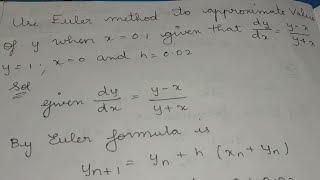 Use Euler method to approximate value
of y when x = 0.1 given that dy/dx = y-x/y+x
y = 1 ; x = 0 and h = 0.02
Sol
given dy/dx = y-x/y+x
By Euler formula is
y_{n+1} = y_n + h (x_n + y_n)